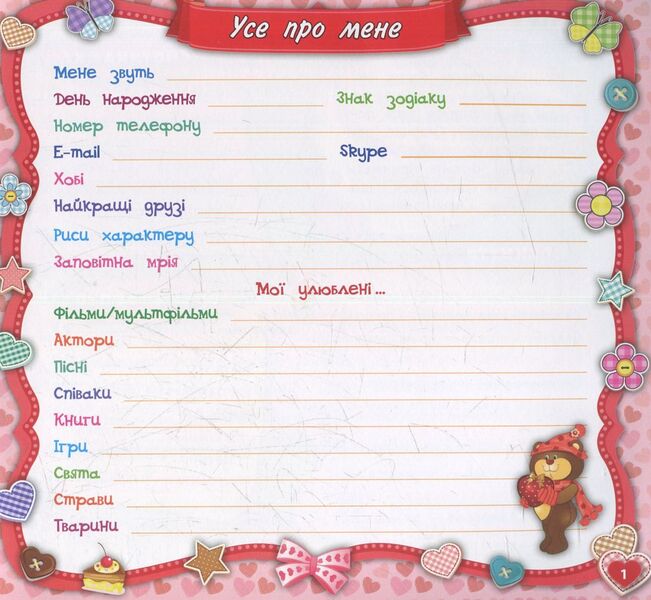 Усе про мене
Мене звуть
День народження Знак зодіаку
Номер телефону
E-mail Skype
Хобі
Найкращі друзі
Риси характеру
Заповітна мрія
Мої улюблені...
Фільми/мультфільми
Актори
Пісні
Співаки
Книги
Ігри
Свята
Страви
Тварини
1